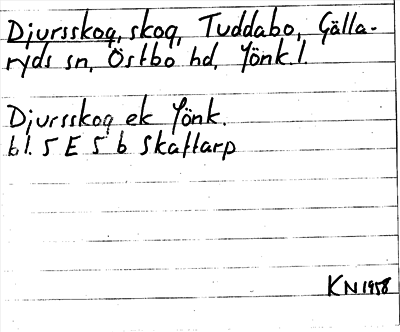 Djursskog, skog, Tuddabo, Gälla-
ryds sn, Östbo hd, Jönk.l.
Djursskog ek Jönk.
bl. 5 E 5 b Skaftarp
KN 1958